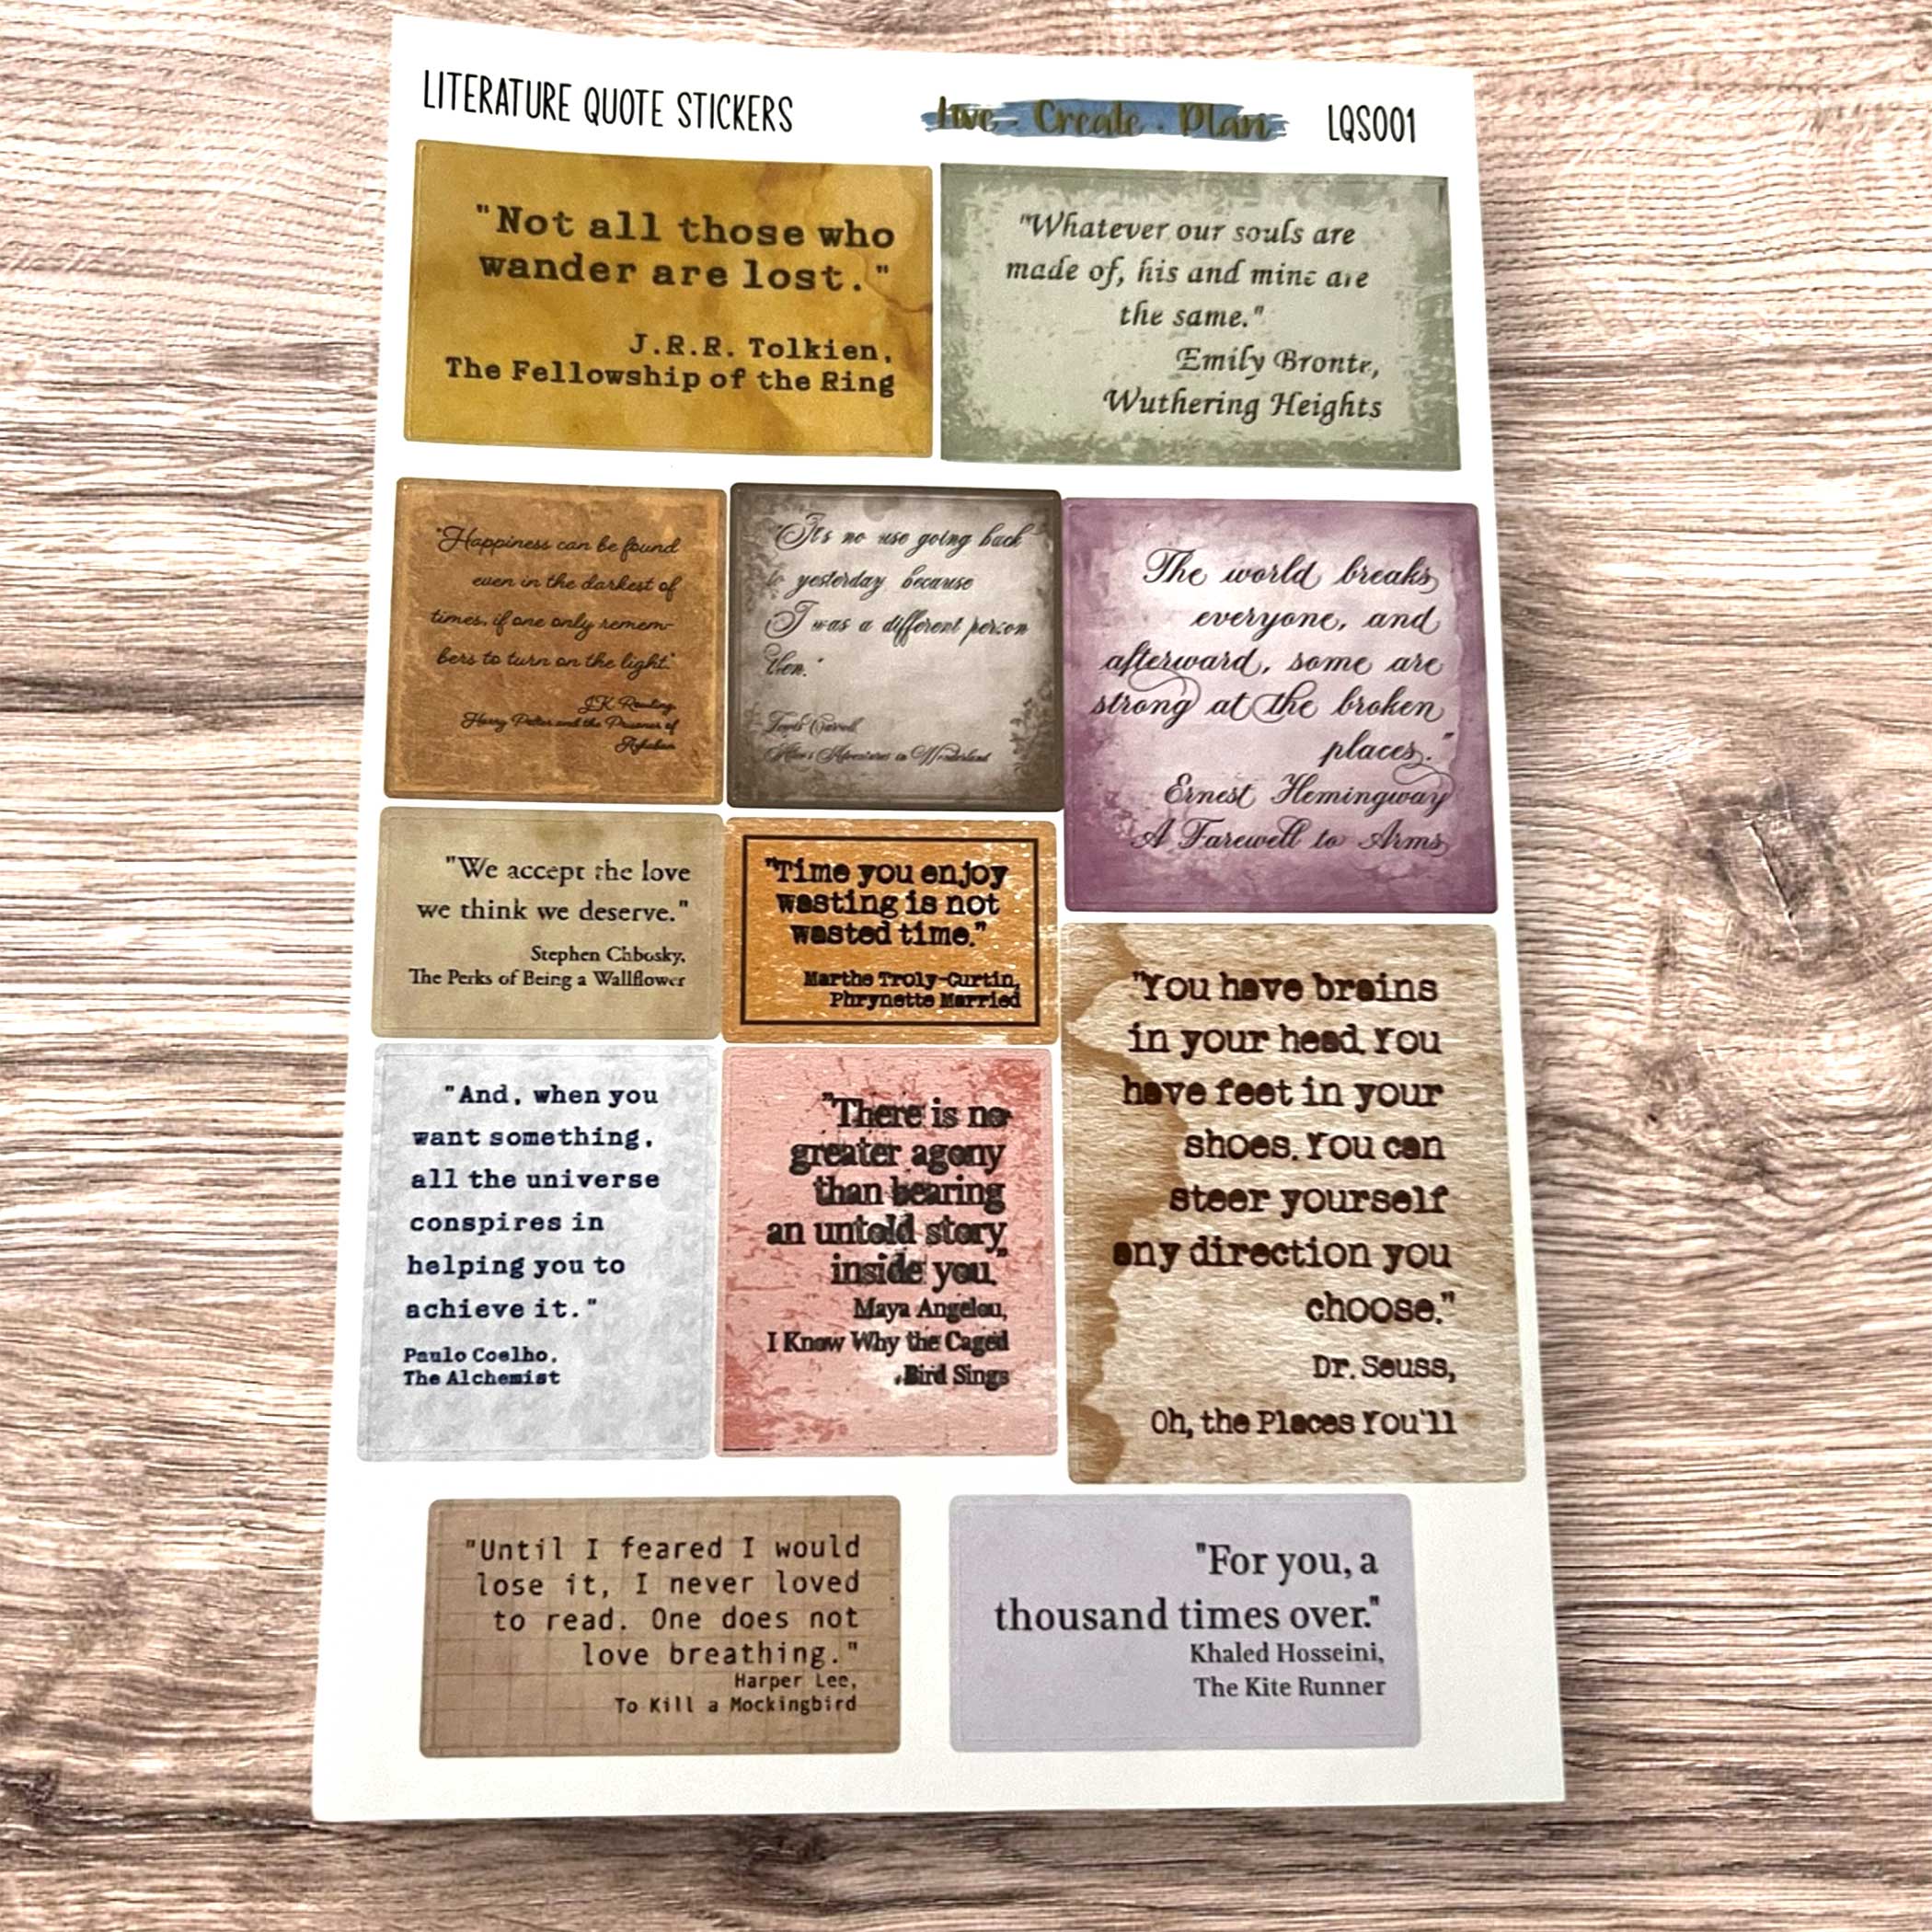 LITERATURE QUOTE STICKERS
Live · Create · Plan
LQS001
"Not all those who
wander are lost."
J.R.R. Tolkien,
The Fellowship of the Ring
"Whatever our souls are
made of, his and mine are
the same."
Emily Bronte,
Wuthering Heights
"Happiness can be found
even in the darkest of
times, if one only remem-
bers to turn on the light."
J.K. Rowling,
Harry Potter and the Prisoner of
Azkaban
"It's no use going back
to yesterday because
I was a different person
then."
Lewis Carroll,
Alice's Adventures in Wonderland
The world breaks
everyone, and
afterward, some are
strong at the broken
places."
Ernest Hemingway
A Farewell to Arms
"We accept the love
we think we deserve."
Stephen Chbosky,
The Perks of Being a Wallflower
"Time you enjoy
wasting is not
wasted time."
Marthe Troly-Curtin,
Phrynette Married
"You have brains
in your head. You
have feet in your
shoes. You can
steer yourself
any direction you
choose."
Dr. Seuss,
Oh, the Places You'll
"And, when you
want something,
all the universe
conspires in
helping you to
achieve it."
Paulo Coelho,
The Alchemist
"There is no
greater agony
than bearing
an untold story
inside you."
Maya Angelou,
I Know Why the Caged
Bird Sings
"Until I feared I would
lose it, I never loved
to read. One does not
love breathing."
Harper Lee,
To Kill a Mockingbird
"For you, a
thousand times over."
Khaled Hosseini,
The Kite Runner